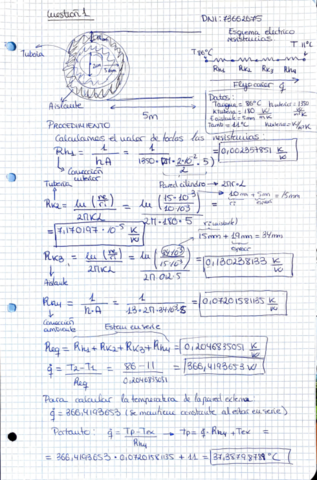 Cuestión 1
DNI: 73662075
Esquema eléctrico
resistencias
Tubería
T 86°C
T 11°C
Rk1 Rk2 Rk3 Rk4
Flujo calor q̇
Aislante
5m
Datos:
PROCEDIMIENTO
Calculamos el valor de todas las resistencias:
Rk1 = 1 / h·A = 1 / = 0,002357851 K/W
Convección interior
Tubería
Pared cilindro → 2πr·L
Rk2 = ln(re/ri) / 2πKL = ln(15·10⁻³ / 10·10⁻³) / 2π·180·5 → 10mm + 5mm = 15mm
= 7,170197·10⁻⁵ K/W
15mm + 19mm = 34mm
Rk3 = ln(re/ri) / 2πKL = ln(34·10⁻³ / 15·10⁻³) / 2π·0.2·5 = 0,130238133 K/W
Aislante
Rk4 = 1 / h·A = 1 / 13·2π·34·10⁻³·5 = 0,0720158135 K/W
Convección
ambiente
Están en serie
Req = Rk1 + Rk2 + Rk3 + Rk4 = 0,2046835051 K/W
q̇ = T2-T1 / Req = 86-11 / 0,2046835051 = 366,4193653 W
Para calcular la temperatura de la pared externa:
q̇ = 366,4193653 (se mantiene constante al estar en serie)
Por tanto: q̇ = Tp-Tex / Rk4 → Tp = q̇·Rk4 + Tex =
= 366,4193653 · 0,0720158135 + 11 =